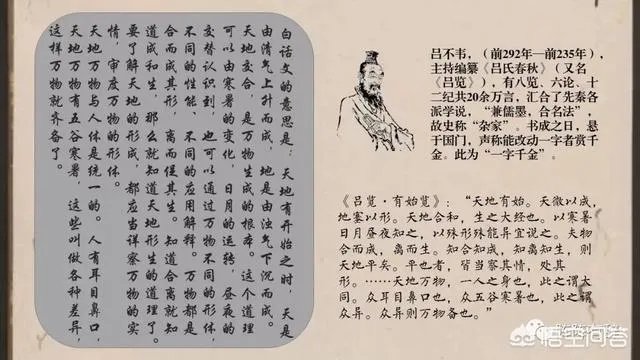 白话文的意思是：天地有开始之时，天是
由清气上升而成，地是由浊气下沉而成。
天地交合，是万物生成的根本。这个道理
可以由寒暑的变化，日月的运转，昼夜的
交替认识到，也可以通过万物不同的形体，
不同的性能，不同的应用解释。万物都是
合而成其形，离而促其生。知道合离就知
道成和生，那么就知道天地形生的道理了。
要了解天地的形成，都应当详察万物的实
情，审度万物的形体。
天地万物与人体是统一的。人有耳目鼻口，
天地万物有五谷寒暑，这些叫做各种差异，
这样万物就齐备了。
吕不韦，（前292年—前235年），
主持编纂《吕氏春秋》（又名
《吕览》），有八览、六论、十
二纪共20余万言，汇合了先秦各
派学说，“兼儒墨，合名法”，
故史称“杂家”。书成之日，悬
于国门，声称能改动一字者赏千
金。此为“一字千金”。
《吕览·有始览》：“天地有始。天微以成，
地塞以形。天地合和，生之大经也。以寒暑
日月昼夜知之，以殊形殊能异宜说之。夫物
合而成，离而生。知合知成，知离知生，则
天地平矣。平也者，皆当察其情，处其
形。……天地万物，一人之身也，此之谓大
同。众耳目鼻口也，众五谷寒暑也，此之谓
众异。众异则万物备也。”
悟空问答